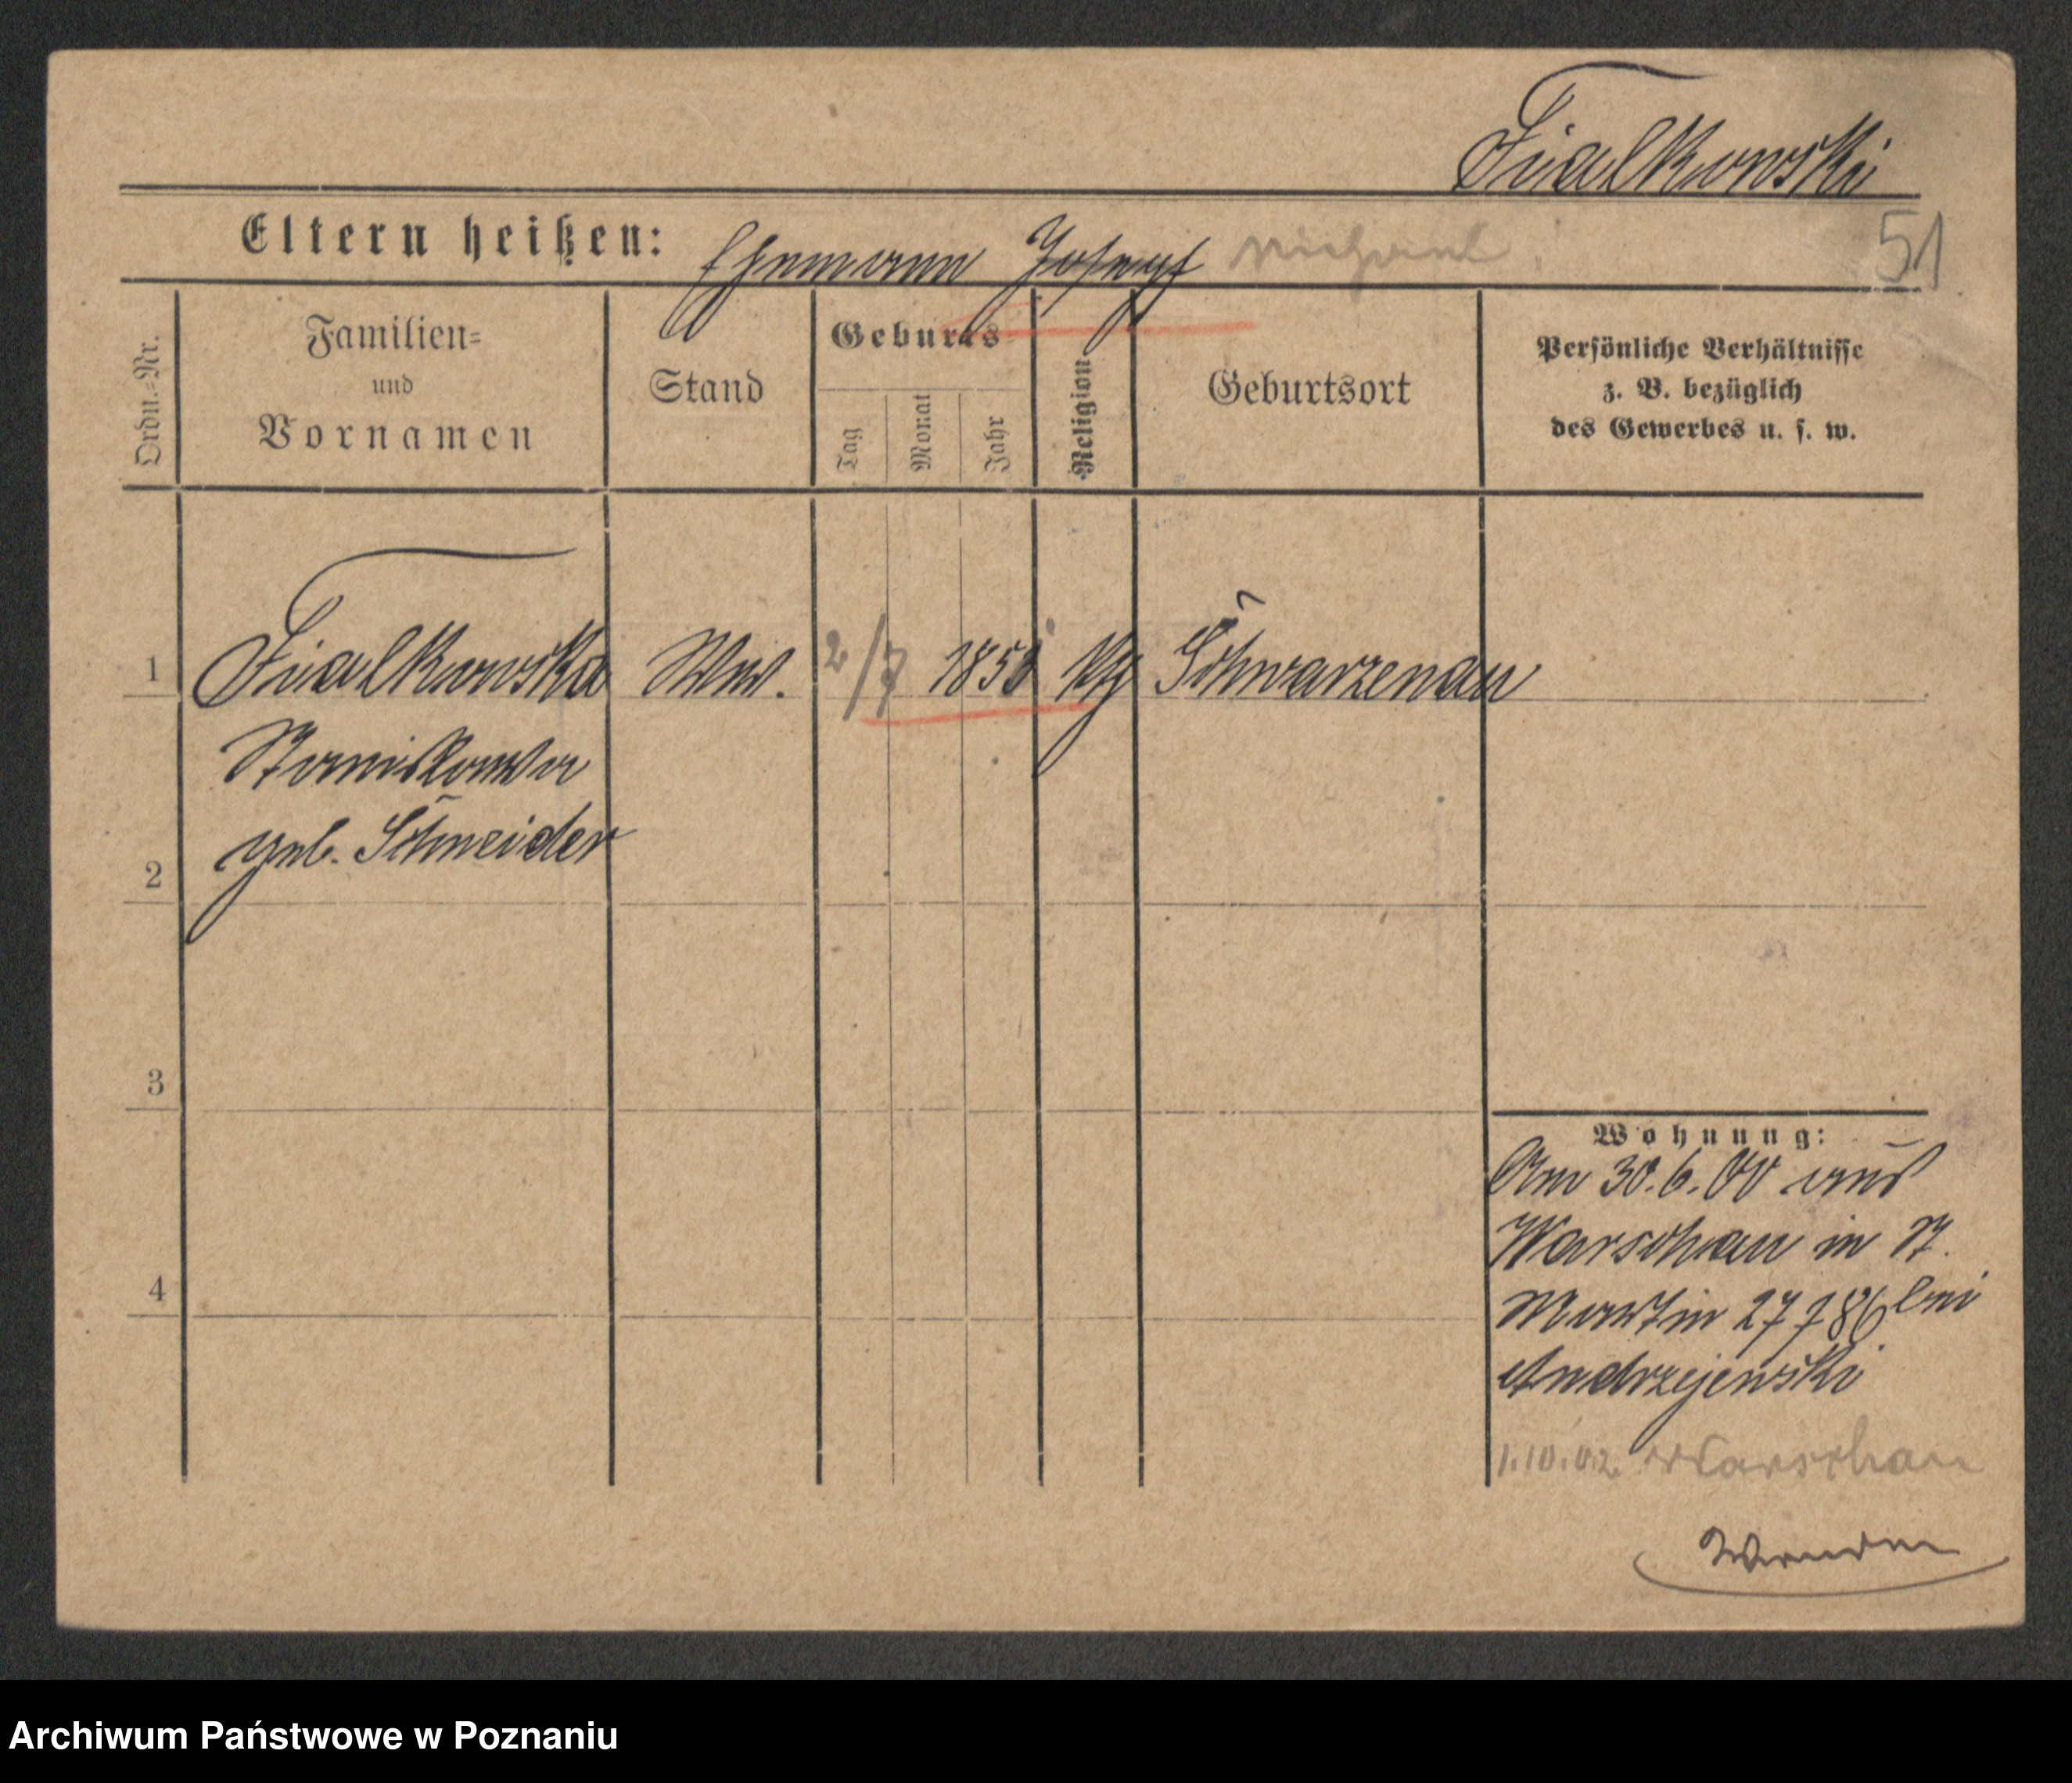 Fialkowski
Eltern heißen: Ehemann Josepf Michael
51
Ordn.=Nr.
Familien=
und
Vornamen
Stand
Geburts
Tag
Monat
Jahr
Religion
Geburtsort
Persönliche Verhältnisse
z. B. bezüglich
des Gewerbes u. s. w.
1 Fialkowska Ww. 2/7 185 Schwarzenau
Stanislawa
geb. Schneider
2
3
4
Wohnung:
Am 30.6.00 aus
Warschau in
Martin 27 bei
Andrzejewski
1.10.02. Warschau
Archiwum Państwowe w Poznaniu